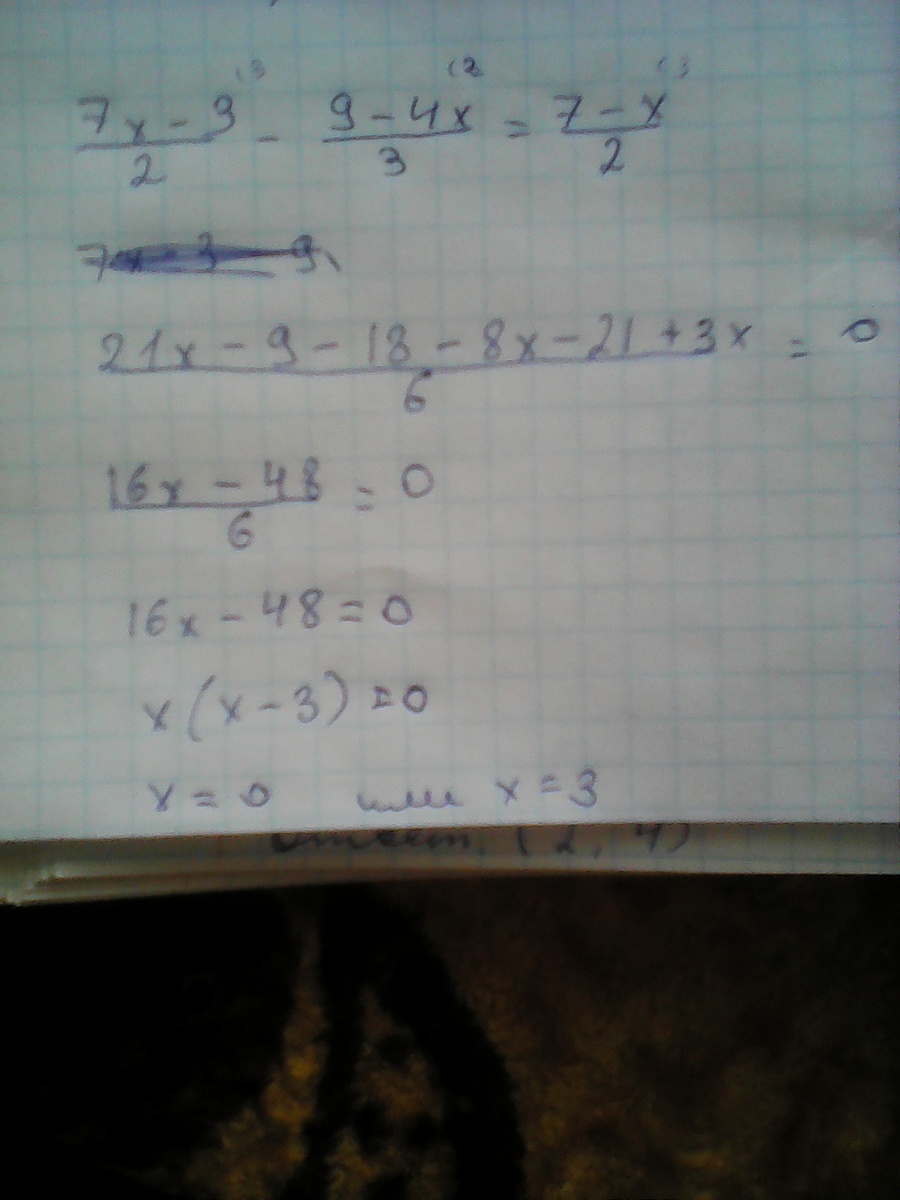 (3 (2 (3
7x - 3 / 2 - 9 - 4x / 3 = 7 - x / 2
21x - 9 - 18 - 8x - 21 + 3x / 6 = 0
16x - 48 / 6 = 0
16x - 48 = 0
x (x - 3) = 0
x = 0 или x = 3